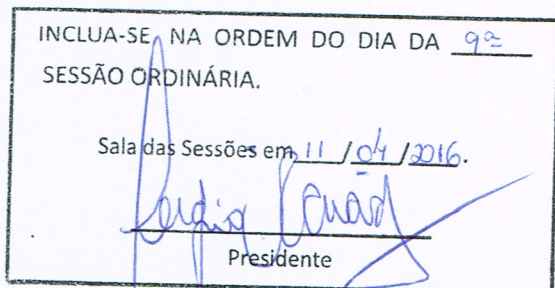 INCLUA-SE NA ORDEM DO DIA DA 9ª
SESSÃO ORDINÁRIA.
Sala das Sessões em 11 / 04 / 2016.
Presidente